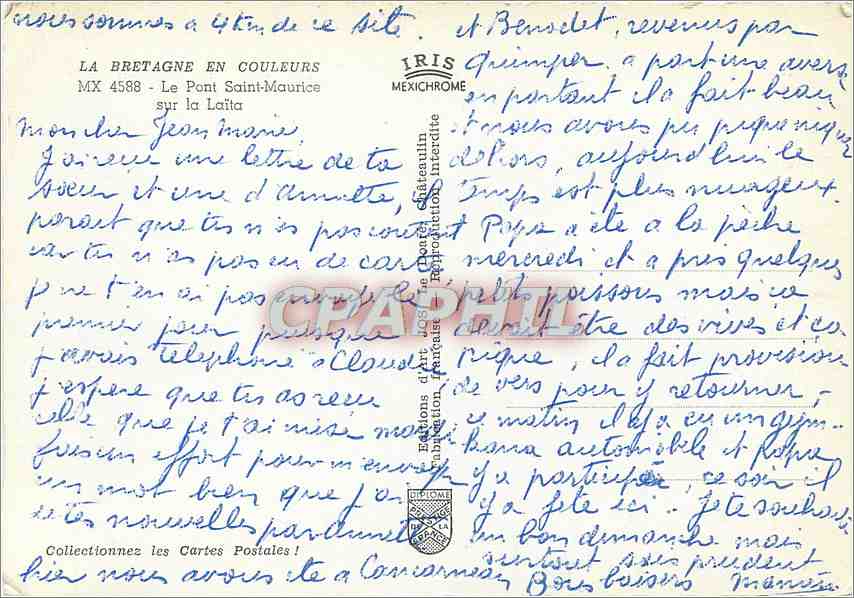 nous sommes a 4 km de ce site.
LA BRETAGNE EN COULEURS
MX 4588 - Le Pont Saint-Maurice
sur la Laïta
Mon cher Jean Marie
J'ai reçu une lettre de ta
sœur et une d'Annette, il
parait que tu n'es pas content
car tu n'as pas eu de carte
je ne t'en ai pas envoyé le
premier jour puisque
j'avais telephoné a Claudie
j'espere que tu as reçu
celle que je t'ai mise
fais un effort pour m'envoyer
un mot bien que j'ai
de tes nouvelles par Annette
Collectionnez les Cartes Postales !
hier nous avons ete a Concarneau
et Benodet, revenus par
Quimper. a part une averse
en partant il a fait beau
et nous avons pu pique niquer
dehors, aujourd'hui le
temps est plus nuageux.
Papa a ete a la pêche
mercredi et a pris quelques
petits poissons mais ca
devait être des vives et ca
pique, il a fait provision
de vers pour y retourner,
ce matin il y a eu un gym-
kana automobile et papa
y a participé, ce soir il
y a fete ici. Je te souhaite
un bon dimanche mais
surtout sois prudent
Bons baisers Maman
IRIS
MEXICHROME
Editions d'Art JOS Le Doaré, Châteaulin
Fabrication française - Reproduction Interdite
DIPLOME
PRESTIGE
DE LA
FRANCE
CPAPHIL